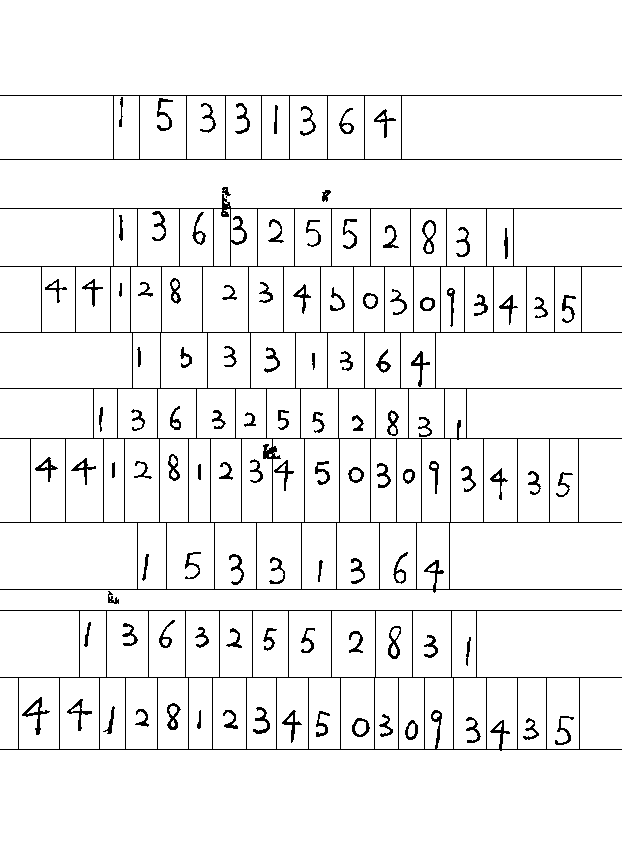 1 5 3 3 1 3 6 4
1 3 6 3 2 5 5 2 8 3 1
4 4 1 2 8 2 3 4 5 0 3 0 9 3 4 3 5
1 5 3 3 1 3 6 4
1 3 6 3 2 5 5 2 8 3 1
4 4 1 2 8 1 2 3 4 5 0 3 0 9 3 4 3 5
1 5 3 3 1 3 6 4
1 3 6 3 2 5 5 2 8 3 1
4 4 1 2 8 1 2 3 4 5 0 3 0 9 3 4 3 5